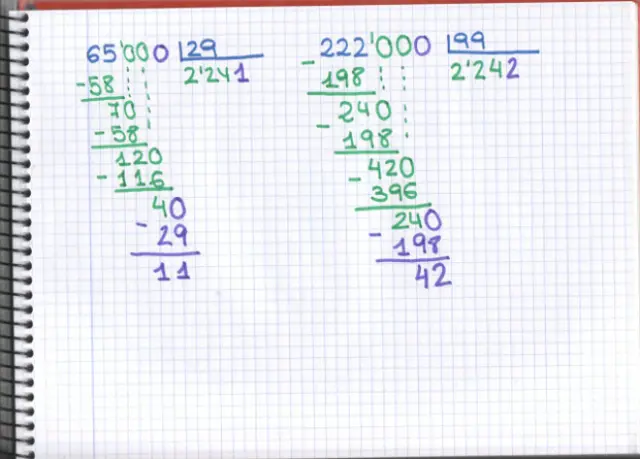 65'000 29
2'241
-58
70
-58
120
-116
40
-29
11
-222'000 99
2'242
198
240
-198
-420
396
240
-198
42